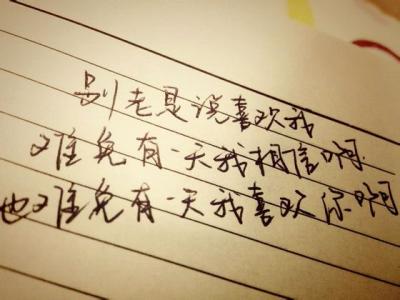 别老是说喜欢我
难免有一天我相信啊
也难免有一天我喜欢你啊